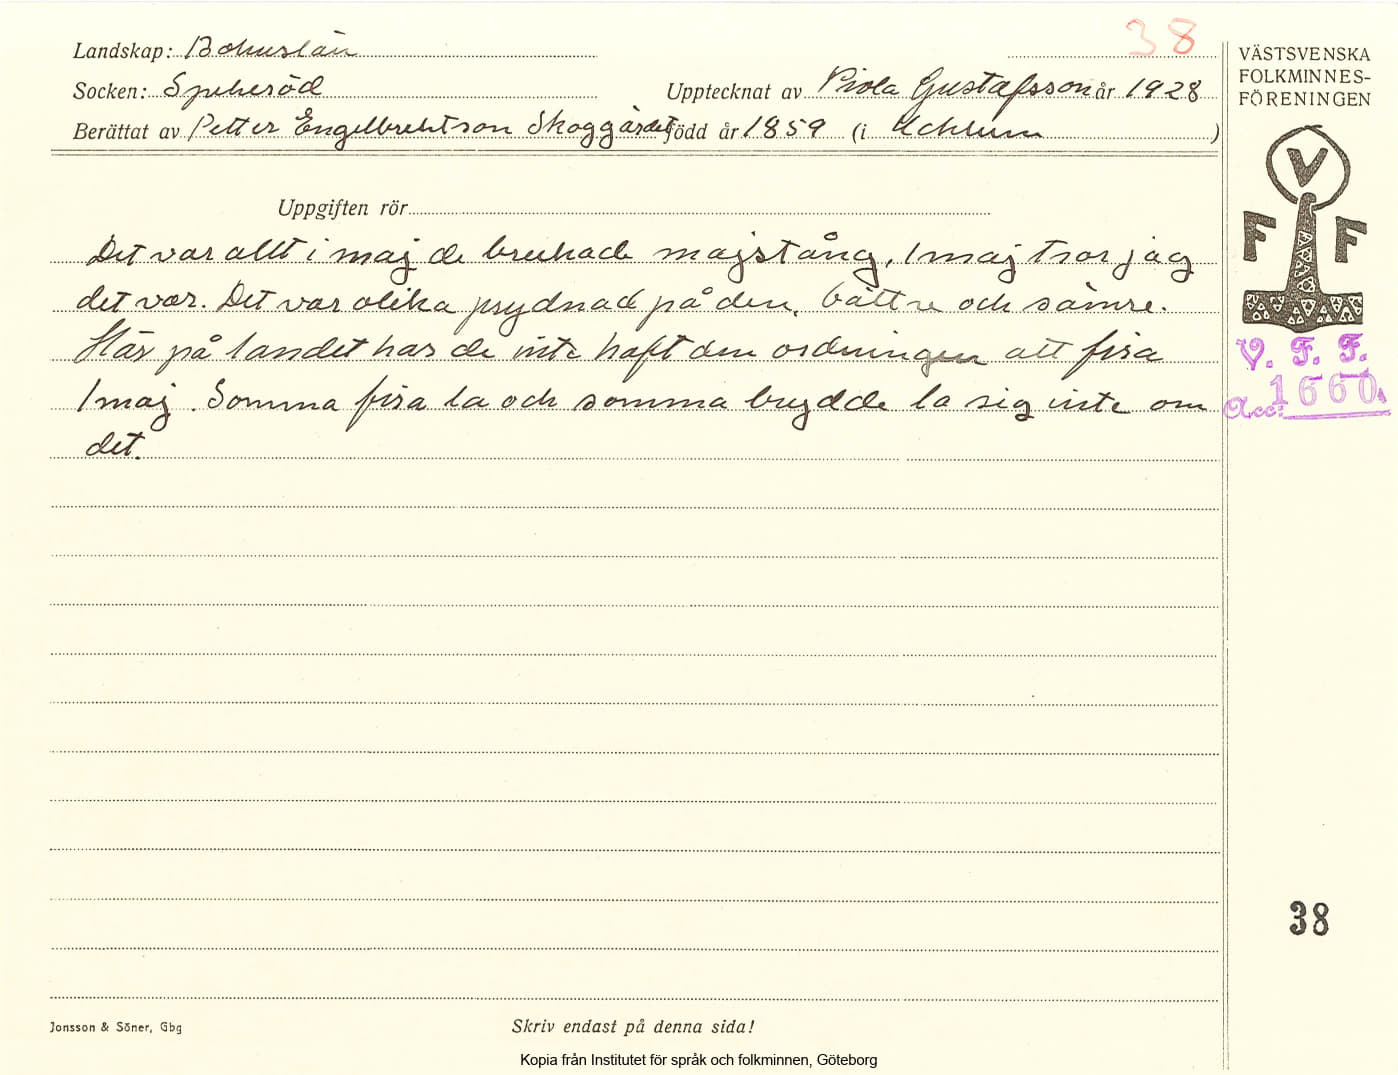 38
Landskap: Bohuslän
Socken: Spekeröd
Upptecknat av Viola Gustafsson år 1928
Berättat av Petter Engelbrektson Skoggärdet född år 1859 (i Ucklum )
VÄSTSVENSKA
FOLKMINNES-
FÖRENINGEN
V
F F
V. F. F.
Acc: 1660.
Uppgiften rör
Det var allt i maj de brukade majstång, 1 maj tror jag
det var. Det var olika prydnad på den, bättre och sämre.
Här på landet har de inte haft den ordningen att fira
1 maj. Somma fira la och somma brydde la sig inte om
det.
38
Jonsson & Söner, Gbg
Skriv endast på denna sida!
Kopia från Institutet för språk och folkminnen, Göteborg